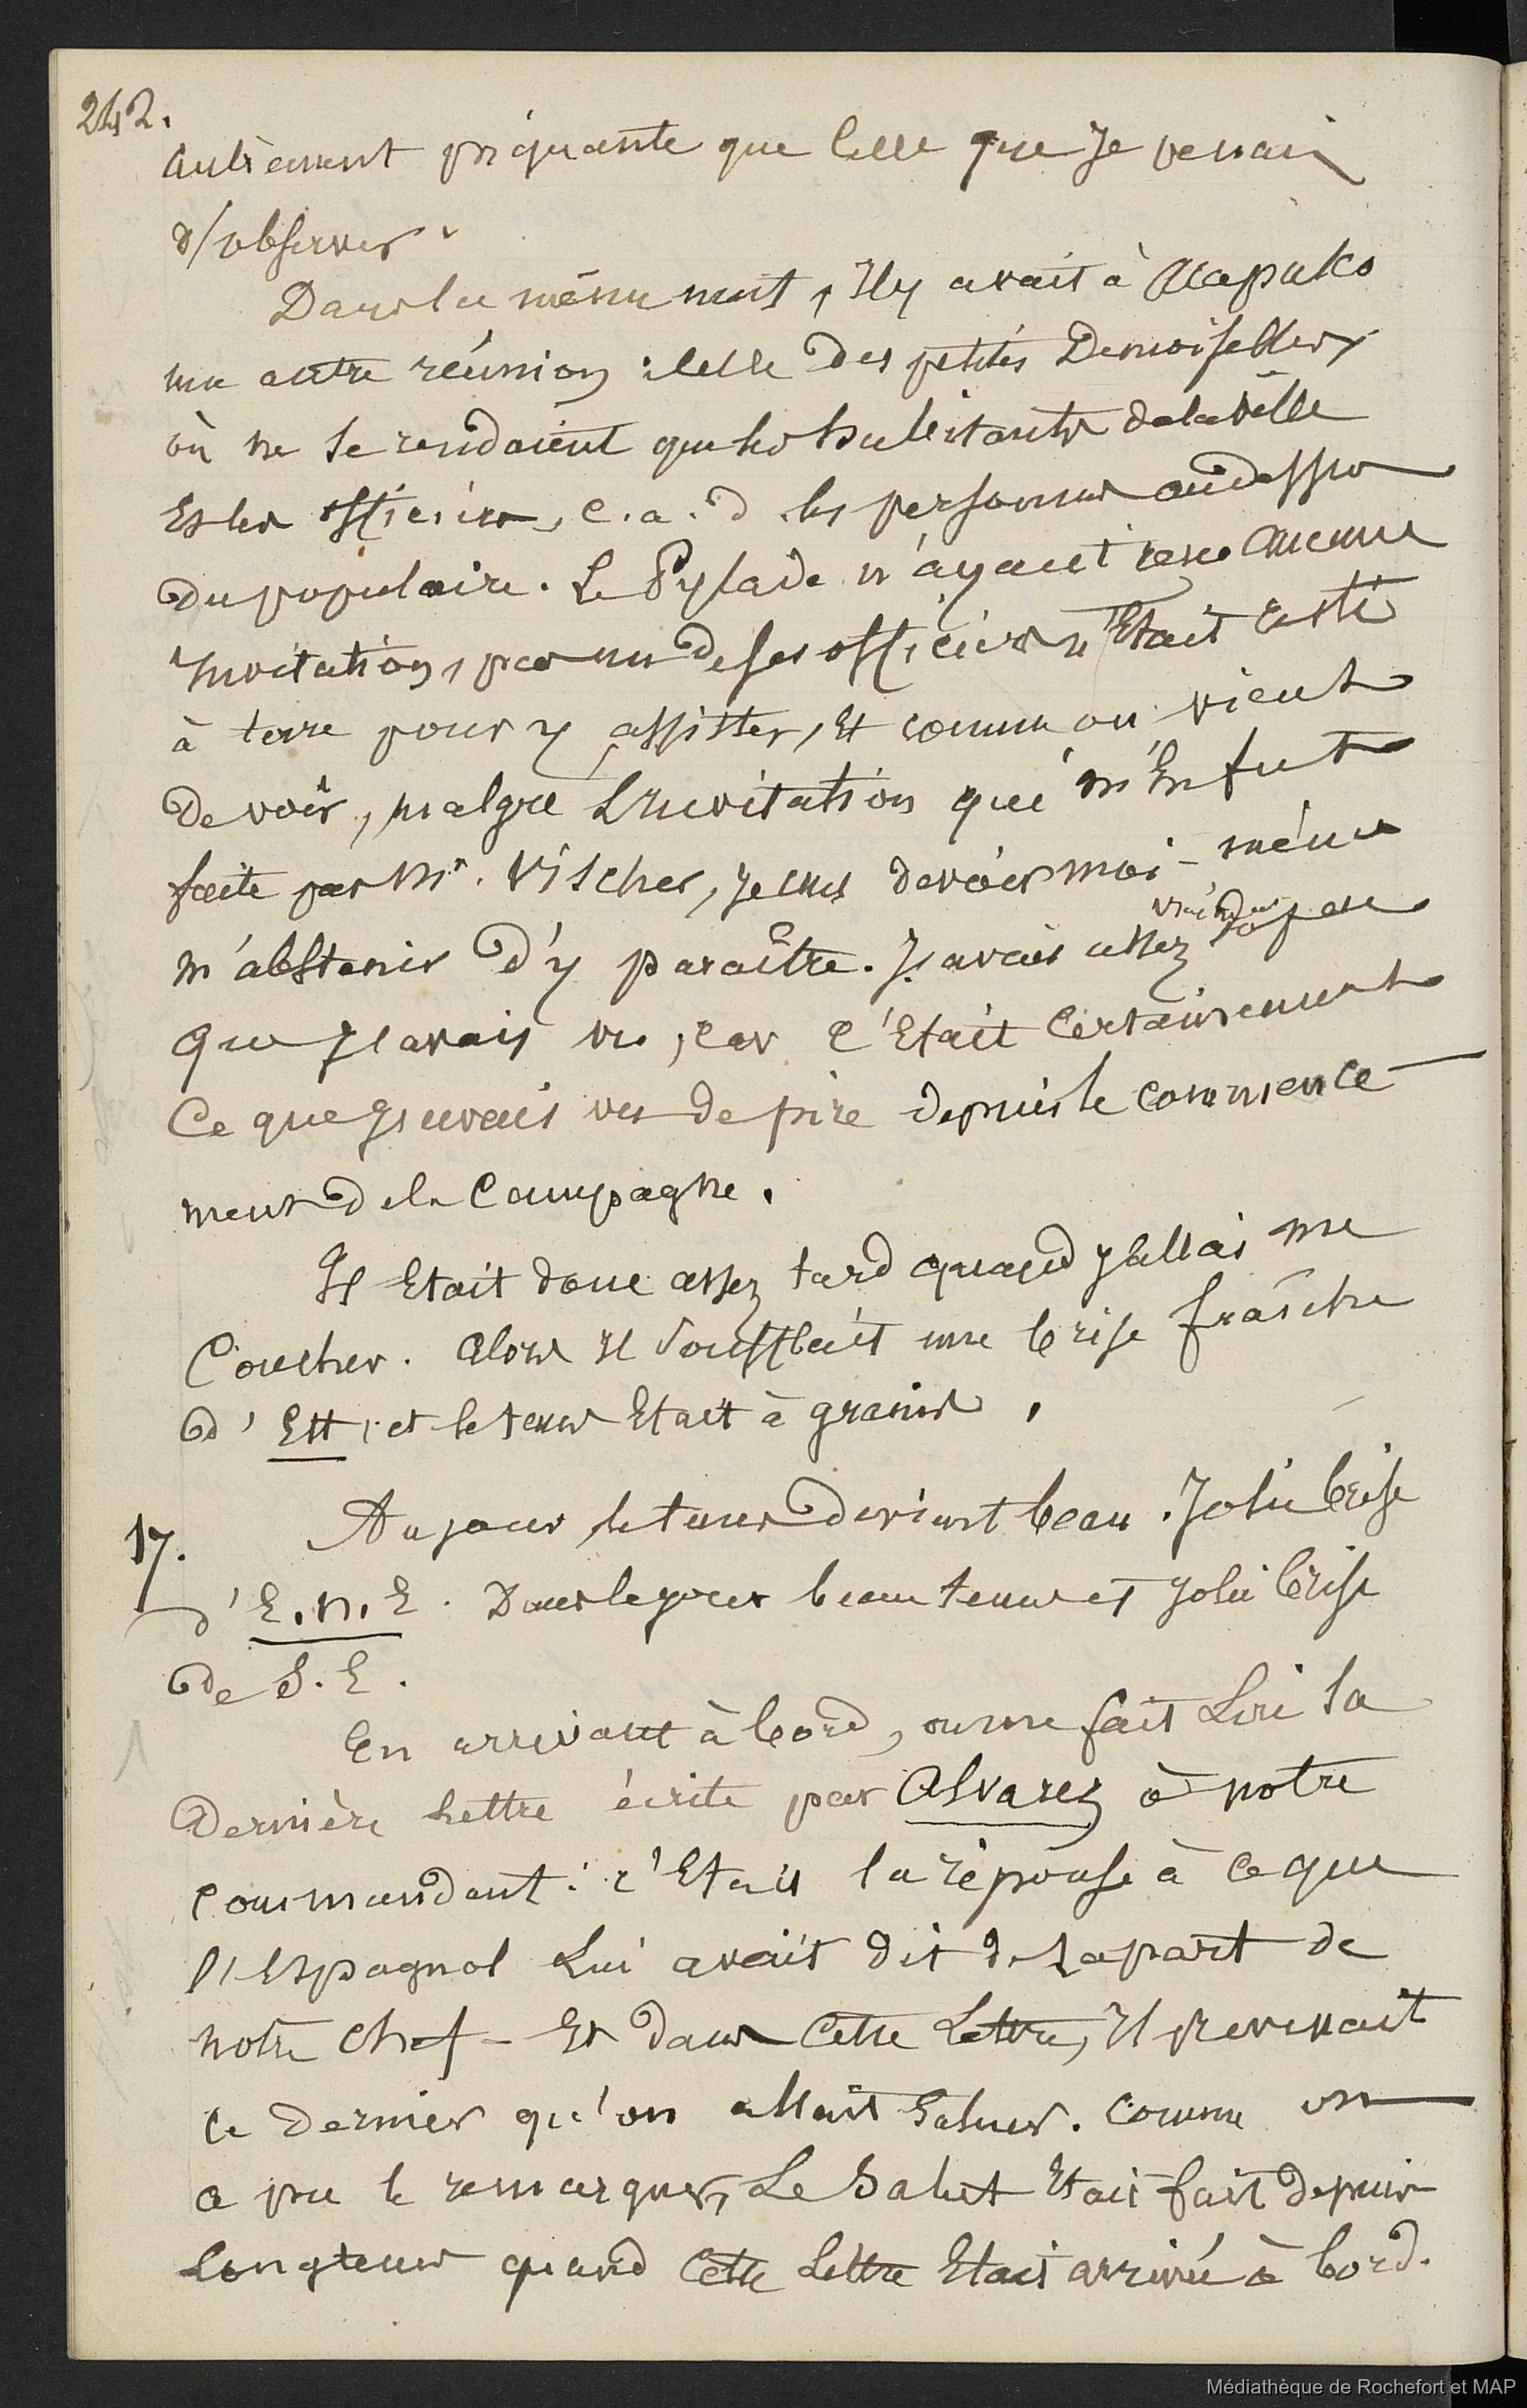 242.
autrement piquante que celle que je venais
d'observer.
Dans la même nuit, Il y avait à Acapulco
une autre réunion : celle des petites Demoiselles,
où ne se rendaient que les habitants de la ville
Et les officiers, c.a.d. les personnes au dessus
du populaire. Le Pylade n'ayant reçu aucune
Invitation, pas un de ses officiers n'Etait resté
à terre pour y assister, Et comme on vient
de voir, malgré L'Invitation qui m'En fut
faite par Mr. Vischer, je crus devoir moi-même
m'abstenir d'y paraître. J'avais assez vraiment du peu
que J'avais vu, car c'Etait Certainement
Ce que J'avais vu de pire depuis le commence-
ment de la Campagne.
Il Etait donc assez tard quand J'allai me
Coucher. Alors Il soufflait une brise fraîche
d'Est, et le tems Etait à grains.
17. Au jour, le tems devient beau. Jolie brise
d'E.N.E. Dans le jour beau tems et Jolie brise
de S.E.
En arrivant à bord, on me fait Lire la
dernière Lettre écrite par Alvarez à notre
commandant : c'Etait la réponse à ce que
l'Espagnol Lui avait dit de la part de
notre Chef - Et dans Cette Lettre, Il prévenait
ce dernier qu'on allait Saluer. Comme on
a pu le remarquer, Le Salut Etait fait depuis
Longtems quand Cette Lettre Etait arrivée à bord.
Médiathèque de Rochefort et MAP